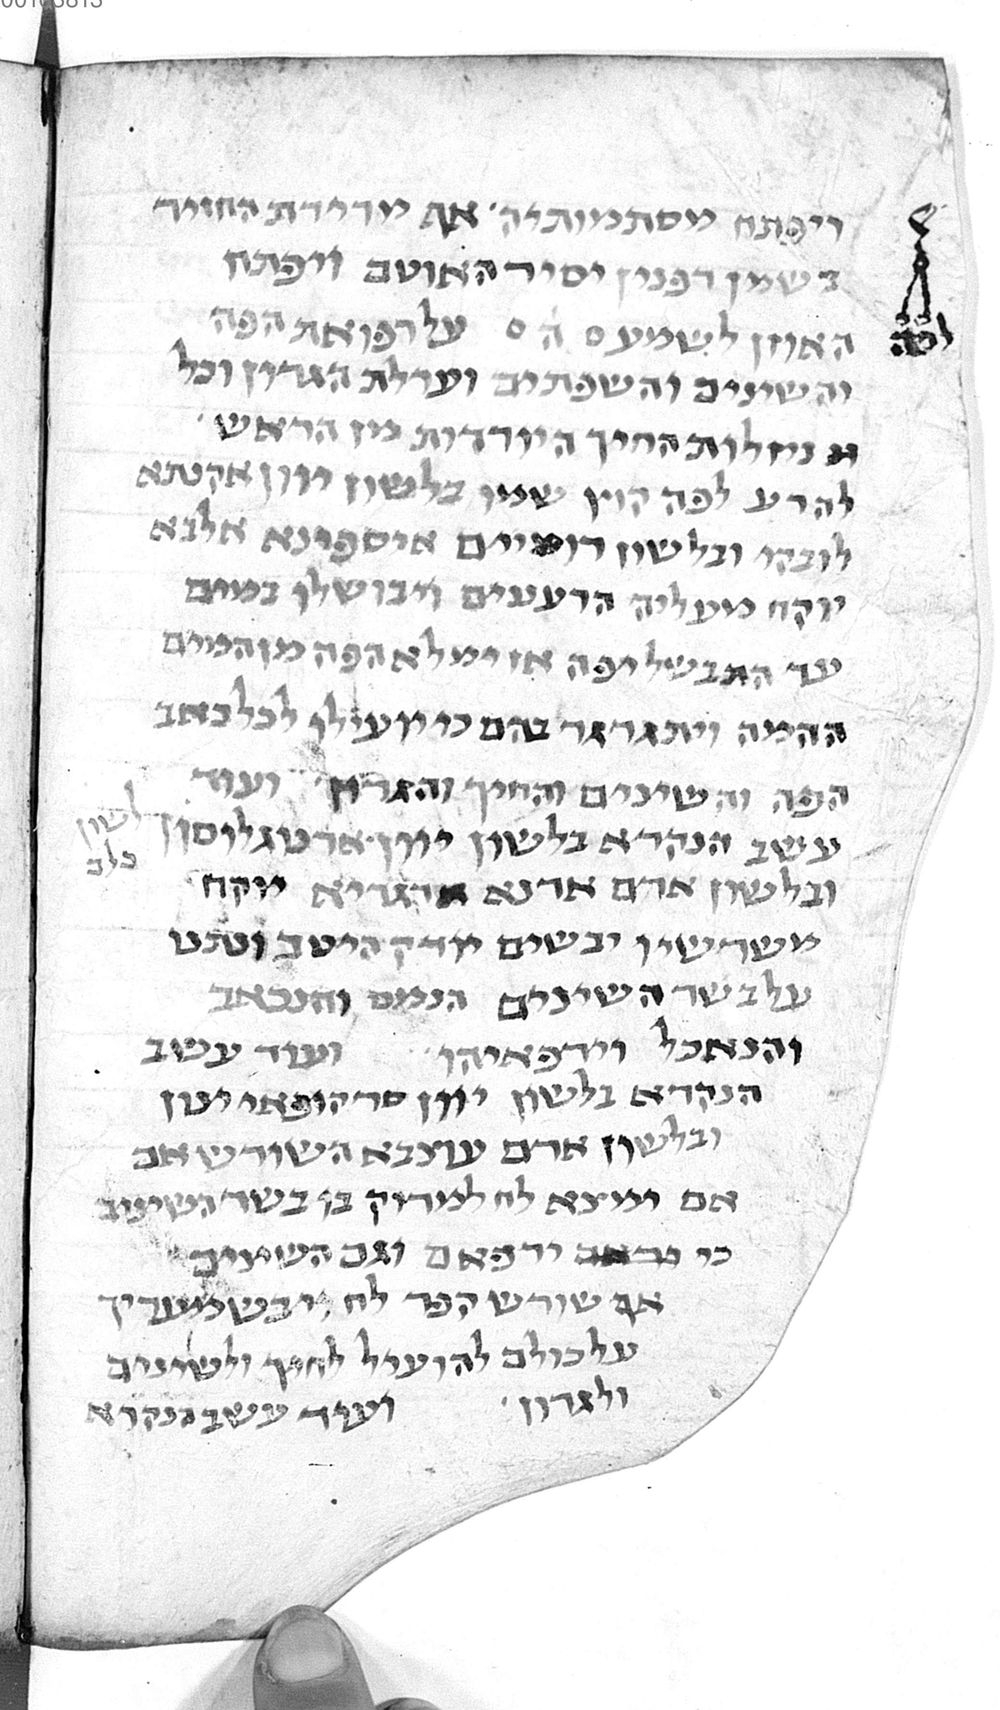 00103813
ויפתח מסתמותיה׳ אף מרירת החזיר
בשמן רפנין יסיר האוטם ויפתח
האוזן לשמע ה על רפואת הפה
לפה
והשינים והשפתים וערלת הגרון וכל
נוזלות החיך היורדות מן הראש׳
להרע לפה קוץ שמו בלשון יוון אקנתא
לובקי ובלשון רומיים איספינא אלבא
יוקח מעליה הרעננים ויבושלו במים
עד התבשל יפה אז ימלא הפה מן המים
ההמה ויתגרגר בהם כי יועילו לכל כאב
הפה והשינים והחיך והגרון׳ ועוד
עשב הנקרא בלשון יוון ארנוגלוסון
לשון כלב
ובלשון ארם ארנא יוקח
משרשיו יבשים יודק היטב ונטט
על בשר השינים הנמס והנכאב
והנאכל וירפאיהו׳ ועוד עשב
הנקרא בלשון יוון
ובלשון ארם עוצבא השורש אם
אם ימצא לח למרוק בו בשר השינים
כי ירפאם וגם השינים
אף שורש הפר לח ויבש מעריך
על כולם להועיל לחיך ולשינים
ולגרון׳ ועוד עשב הנקרא